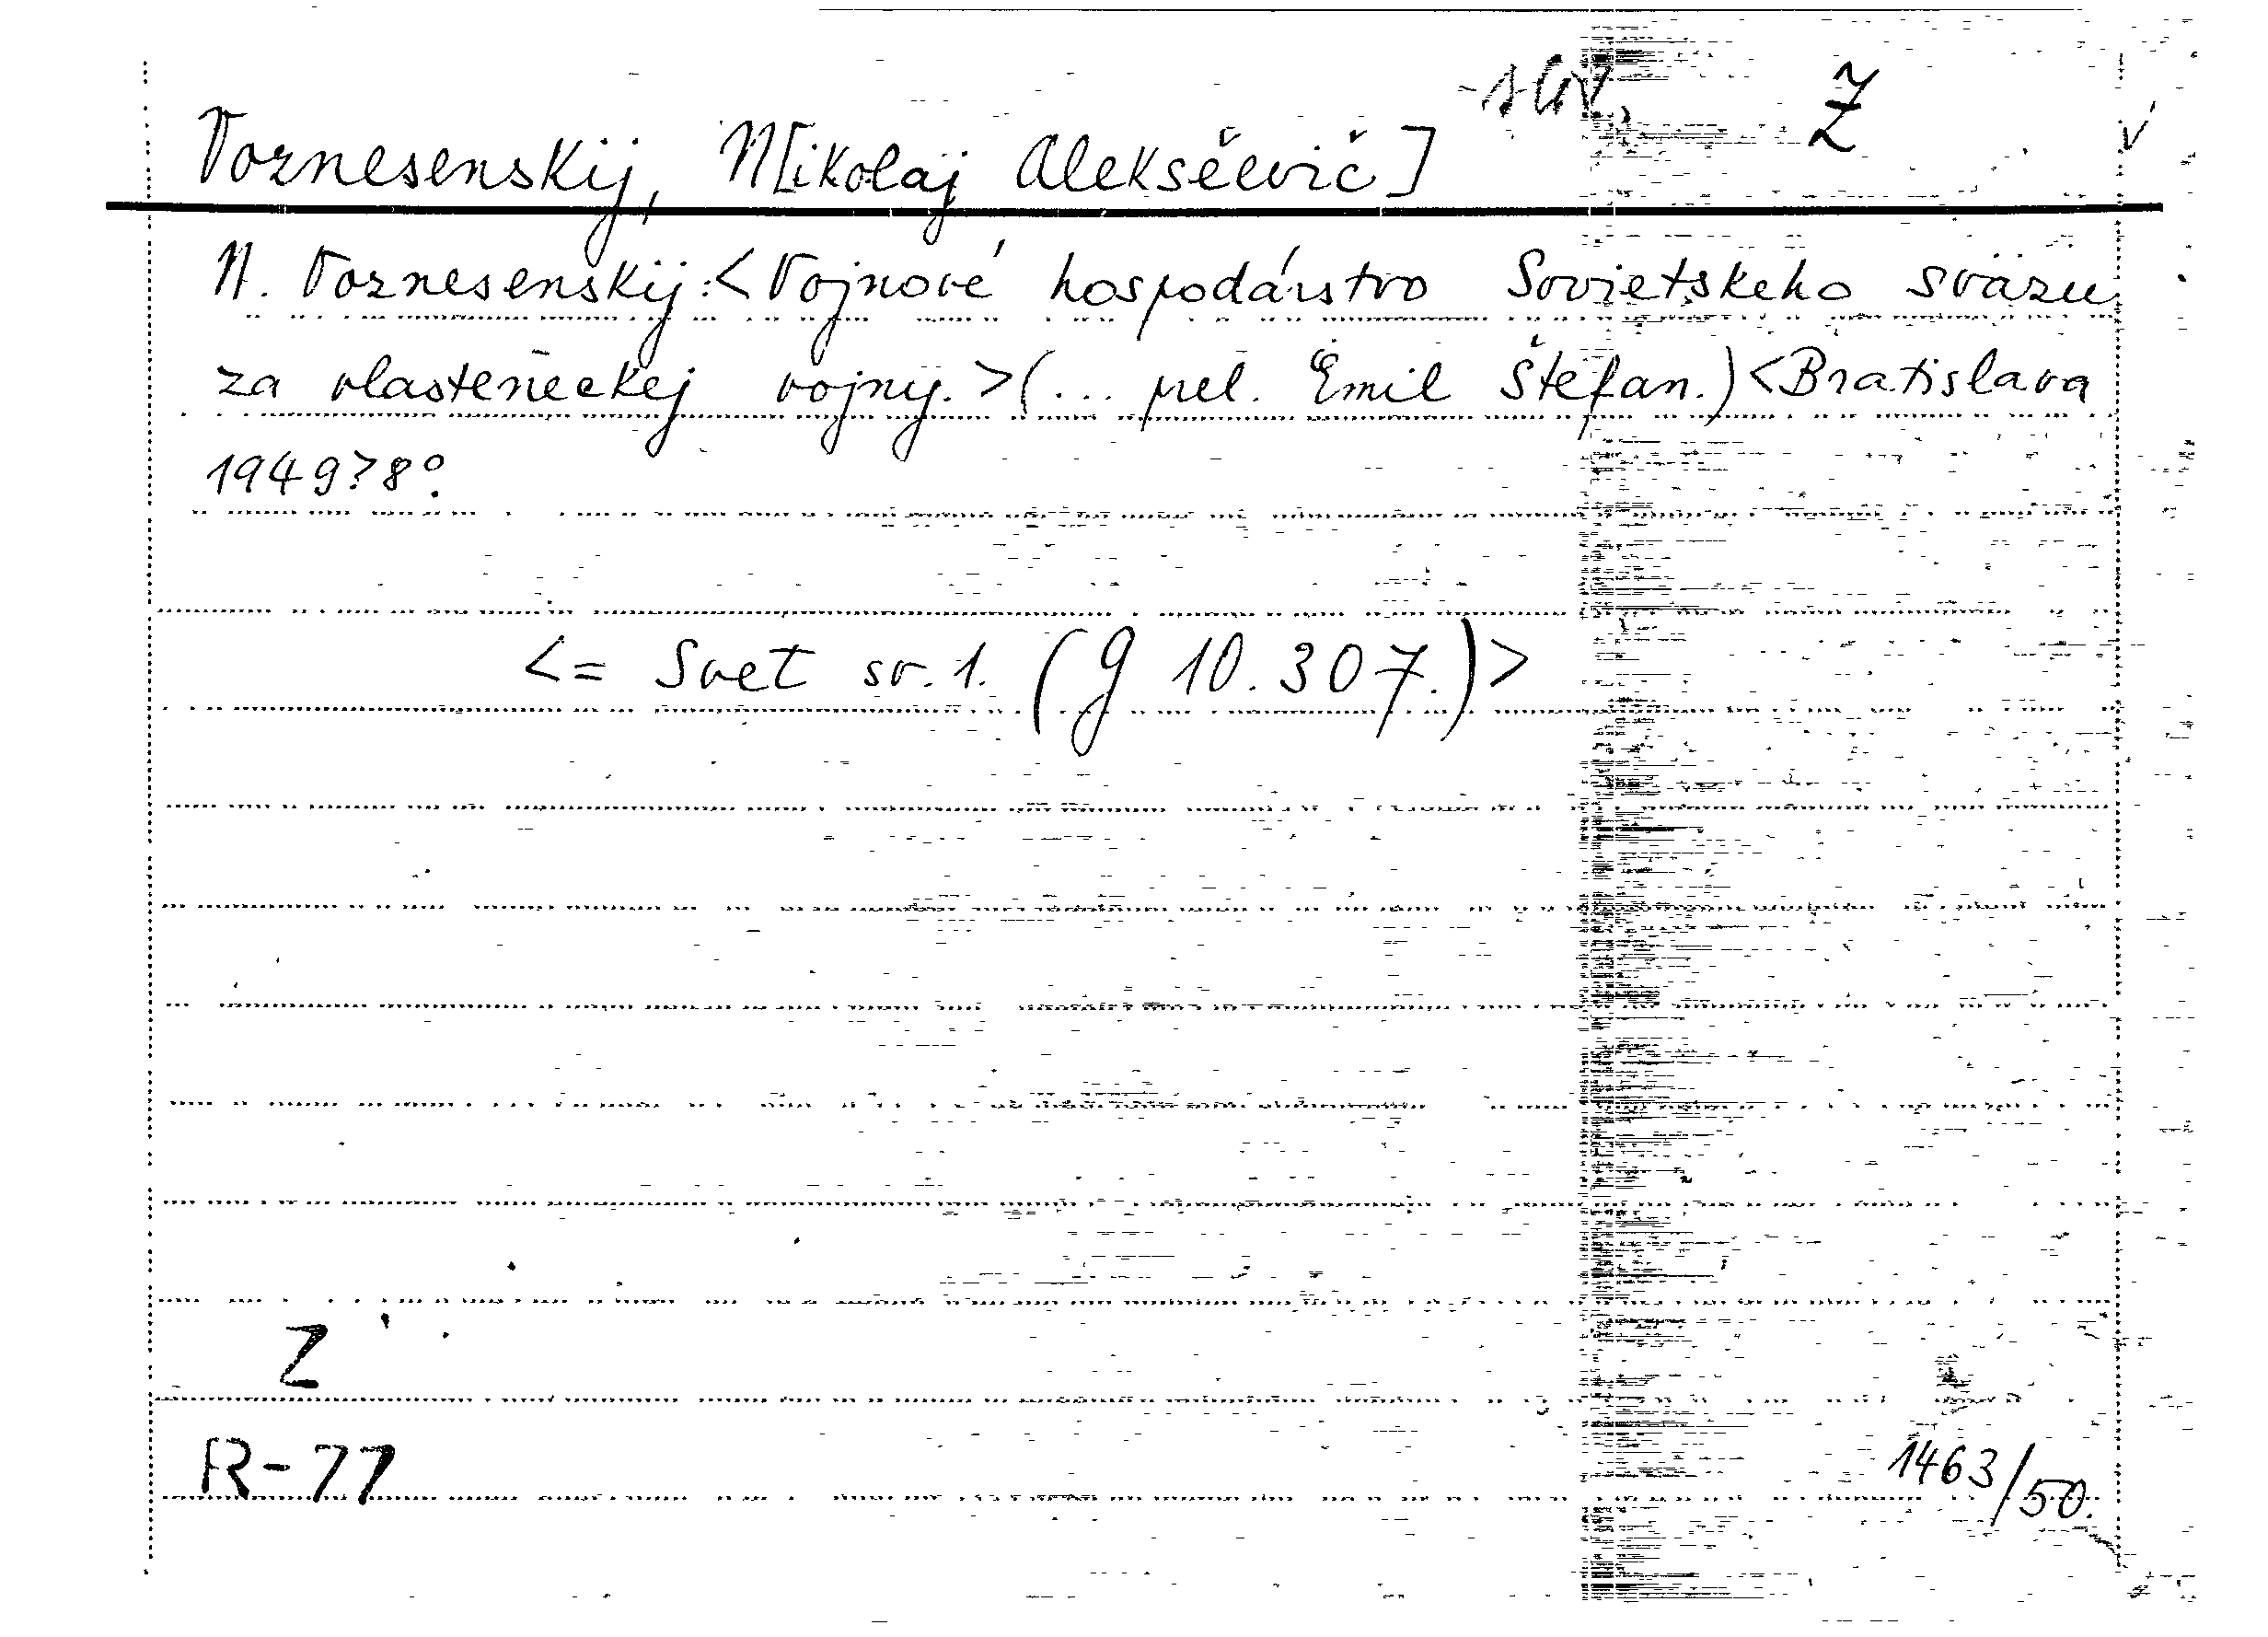 -slov. Ž
Voznesenskij, N[ikolaj Aleksěevič]
N. Voznesenskij: <Vojnové hospodárstvo Sovietskeho sväzu
za vlasteneckej vojny.> (... prel. Emil Štefan.) <Bratislava
1949> 8°.
<= Svet sv. 1. (g 10.307.)>
Z
R-77
1463/50.